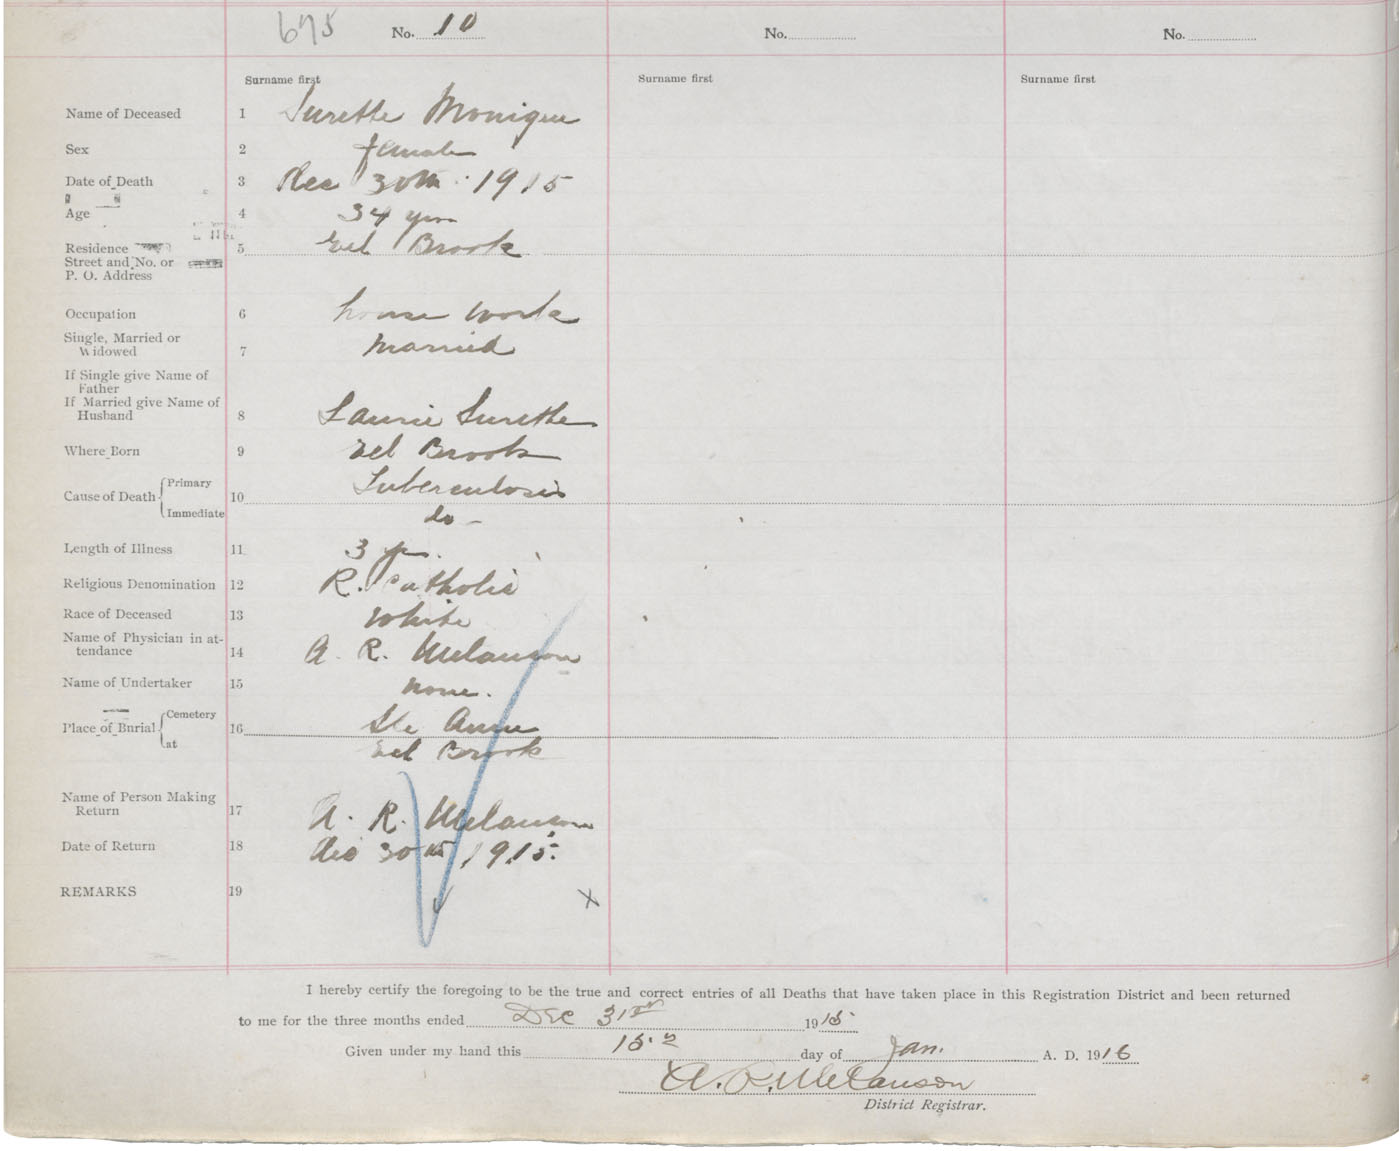 675
No. 10
No.
No.
Surname first
Surname first
Surname first
Name of Deceased 1 Surette Monique
Sex 2 female
Date of Death 3 Dec 30th 1915
Age 4 34 yrs
Residence 5 Eel Brook
Street and No. or
P. O. Address
Occupation 6 house work
Single, Married or
Widowed 7 Married
If Single give Name of
Father
If Married give Name of
Husband 8 Laurie Surette
Where Born 9 Eel Brook
Cause of Death Primary 10 Tuberculosis
Immediate do -
Length of Illness 11 3 yrs.
Religious Denomination 12 R. Catholic
Race of Deceased 13 White
Name of Physician in at-
tendance 14 A. R. Melanson
Name of Undertaker 15 none.
Place of Burial Cemetery 16 Ste Anne
at Eel Brook
Name of Person Making
Return 17 A. R. Melanson
Date of Return 18 Dec 30th 1915.
REMARKS 19 x
I hereby certify the foregoing to be the true and correct entries of all Deaths that have taken place in this Registration District and been returned
to me for the three months ended Dec 31st 1915
Given under my hand this 15th day of Jan. A. D. 1916
A. R. Melanson
District Registrar.